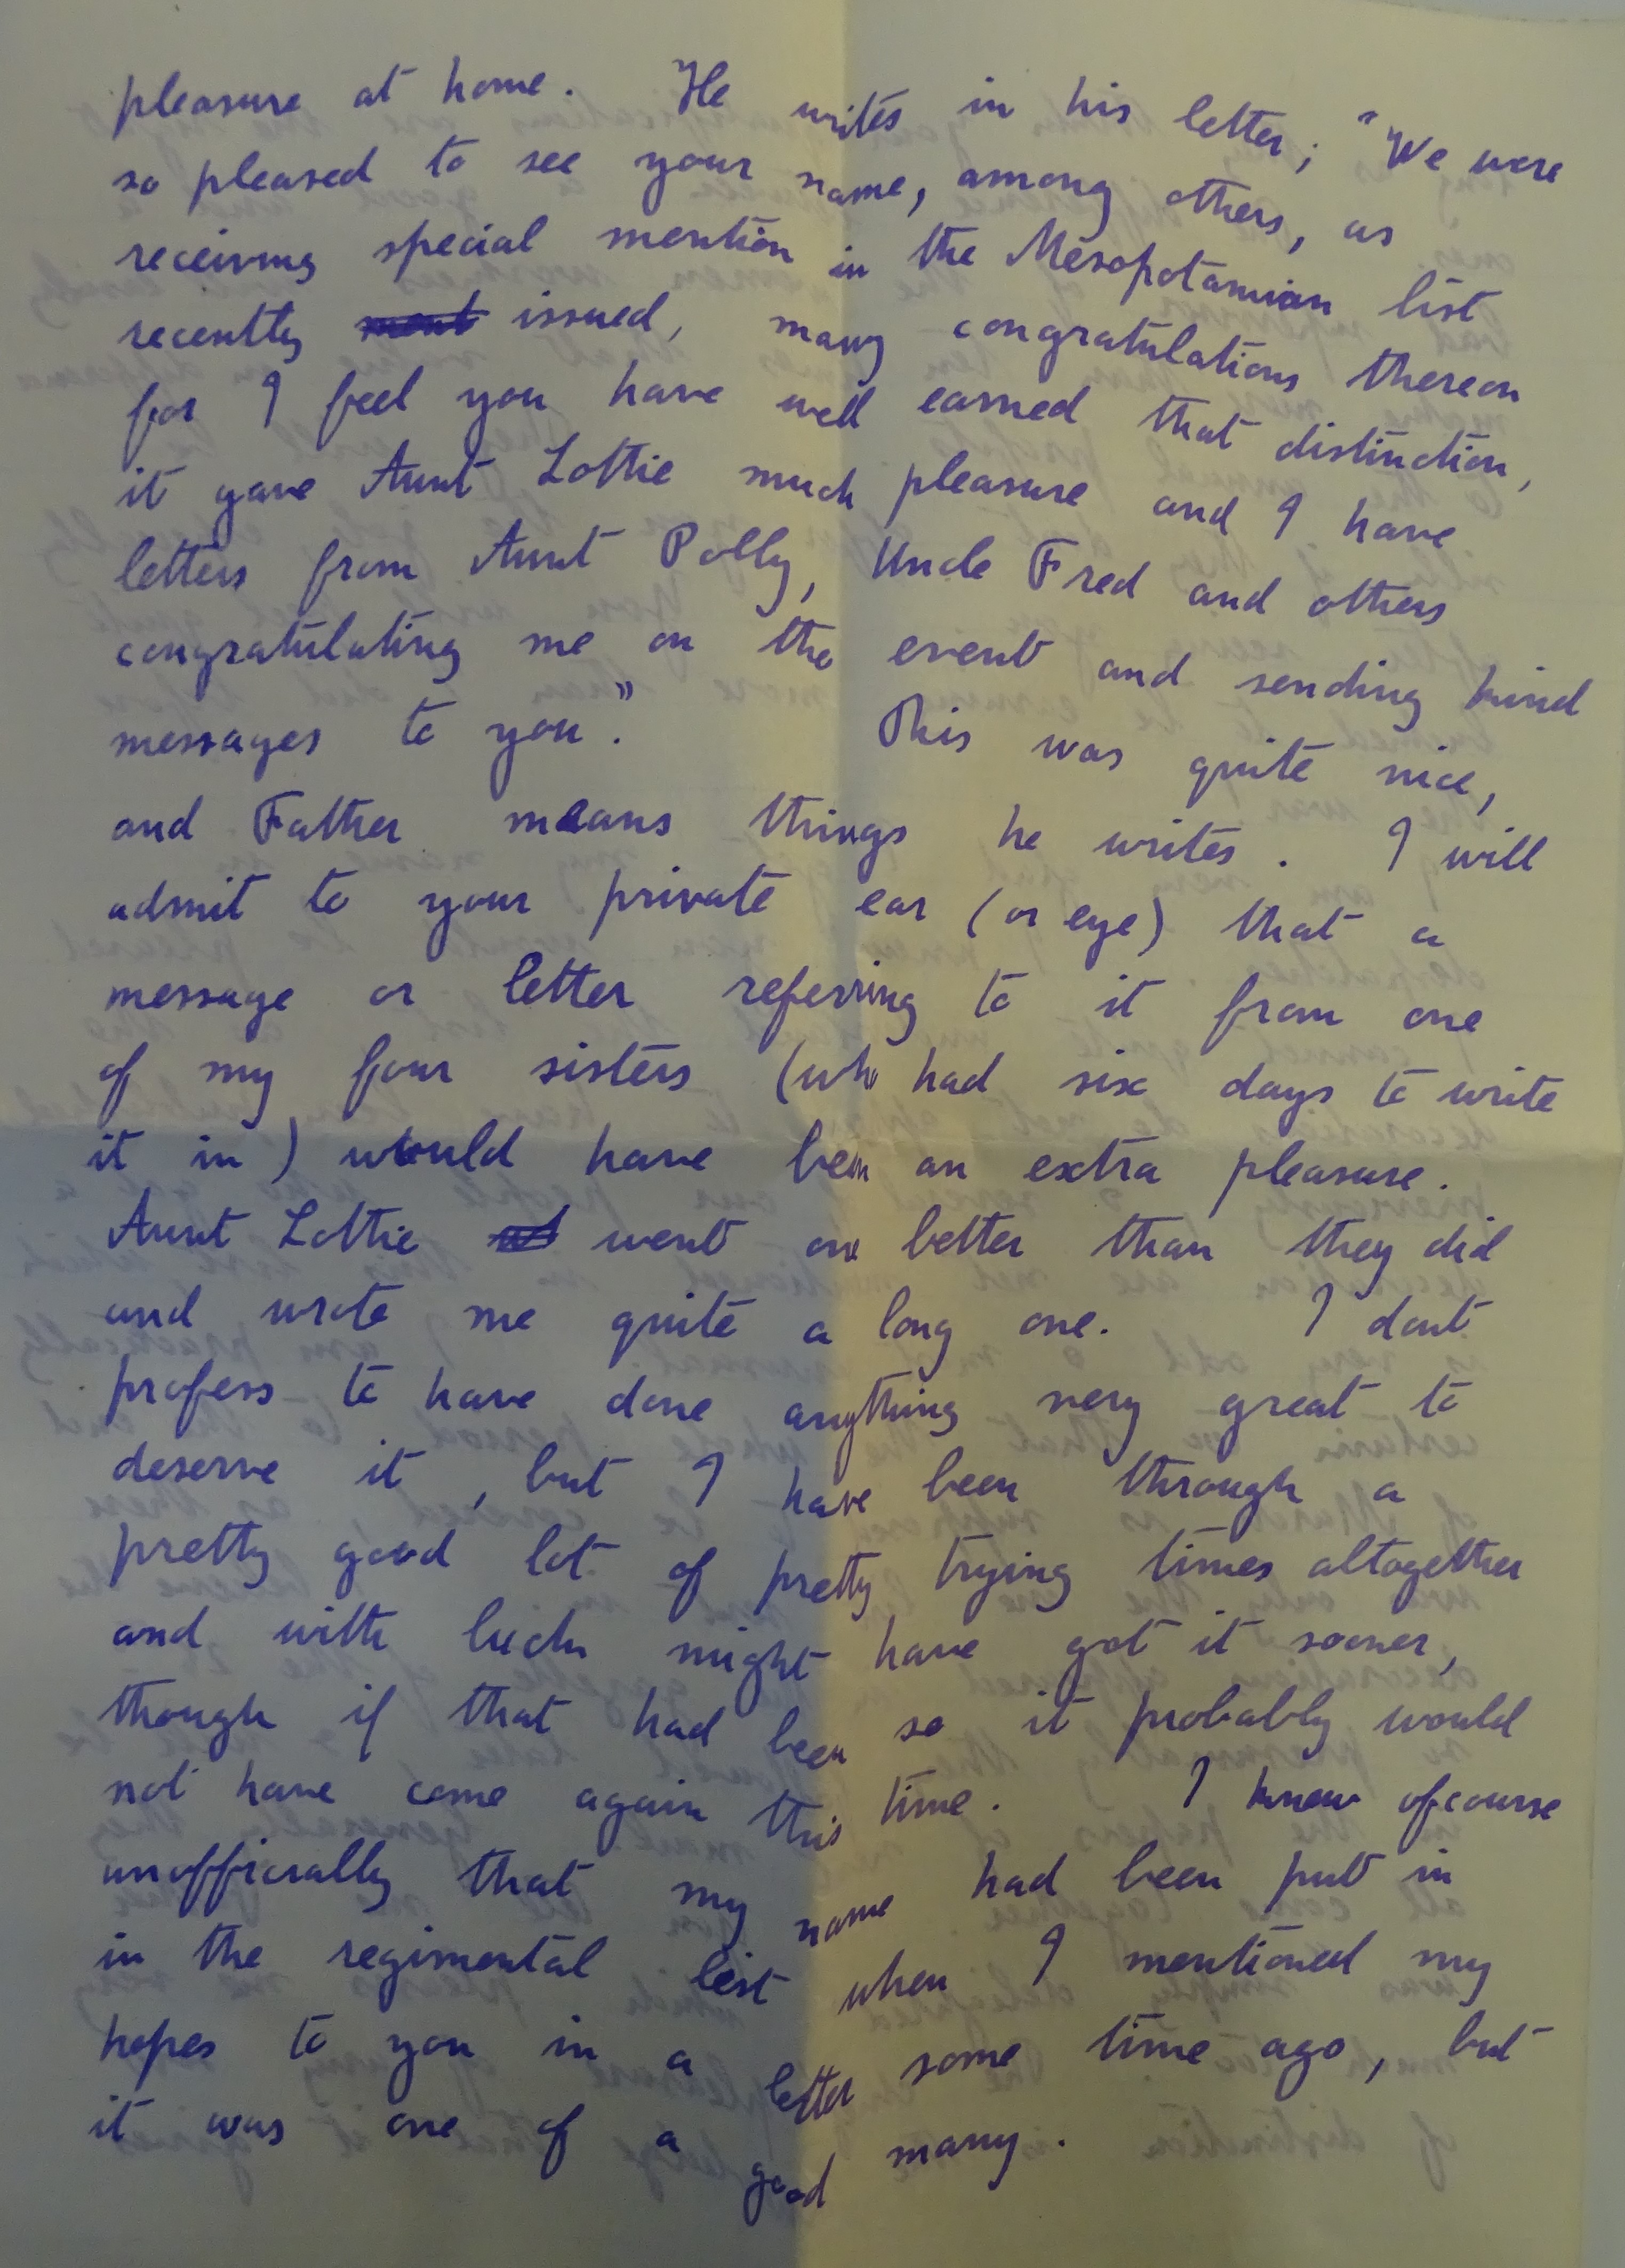 pleasure at home. He writes in his letter; "We were
so pleased to see your name, among others, as
receiving special mention in the Mesopotamian list
recently issued, many congratulations thereon
for I feel you have well earned that distinction,
it gave Aunt Lottie much pleasure and I have
letters from Aunt Polly, Uncle Fred and others
congratulating me on the event and sending kind
messages to you." This was quite nice,
and Father means things he writes. I will
admit to your private ear (or eye) that a
message or letter referring to it from one
of my four sisters (who had six days to write
it in) would have been an extra pleasure.
Aunt Lottie went one better than they did
and wrote me quite a long one. I dont
profess to have done anything very great to
deserve it, but I have been through a
pretty good lot of pretty trying times altogether
and with luck might have got it sooner,
though if that had been so it probably would
not have come again this time. I knew ofcourse
unofficially that my name had been put in
in the regimental list when I mentioned my
hopes to you in a letter some time ago, but
it was one of a good many.